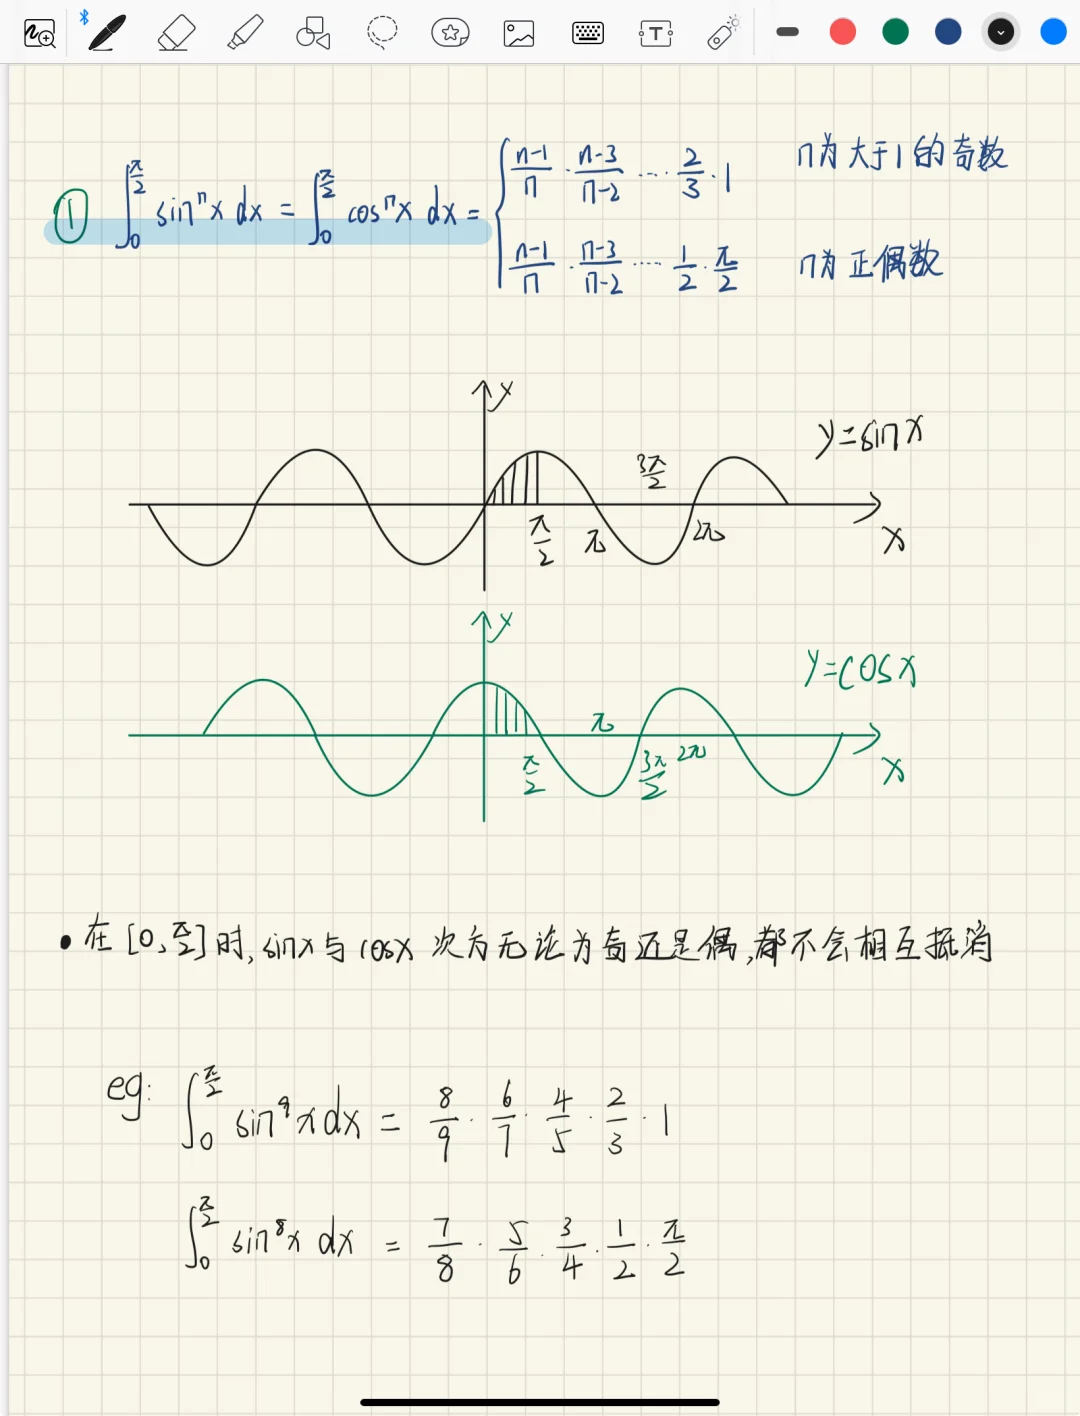 ① ∫₀^(π/2) sinⁿx dx = ∫₀^(π/2) cosⁿx dx = { (n-1)/n · (n-3)/(n-2) ···· 2/3 · 1 n为大于1的奇数
(n-1)/n · (n-3)/(n-2) ···· 1/2 · π/2 n为正偶数
y
y=sinx
3π/2
π/2 π 2π x
y
y=cosx
π
π/2 3π/2 2π x
• 在[0,π/2]时,sinx与cosx次方无论为奇还是偶,都不会相互抵消
eg: ∫₀^(π/2) sin⁹x dx = 8/9 · 6/7 · 4/5 · 2/3 · 1
∫₀^(π/2) sin⁸x dx = 7/8 · 5/6 · 3/4 · 1/2 · π/2